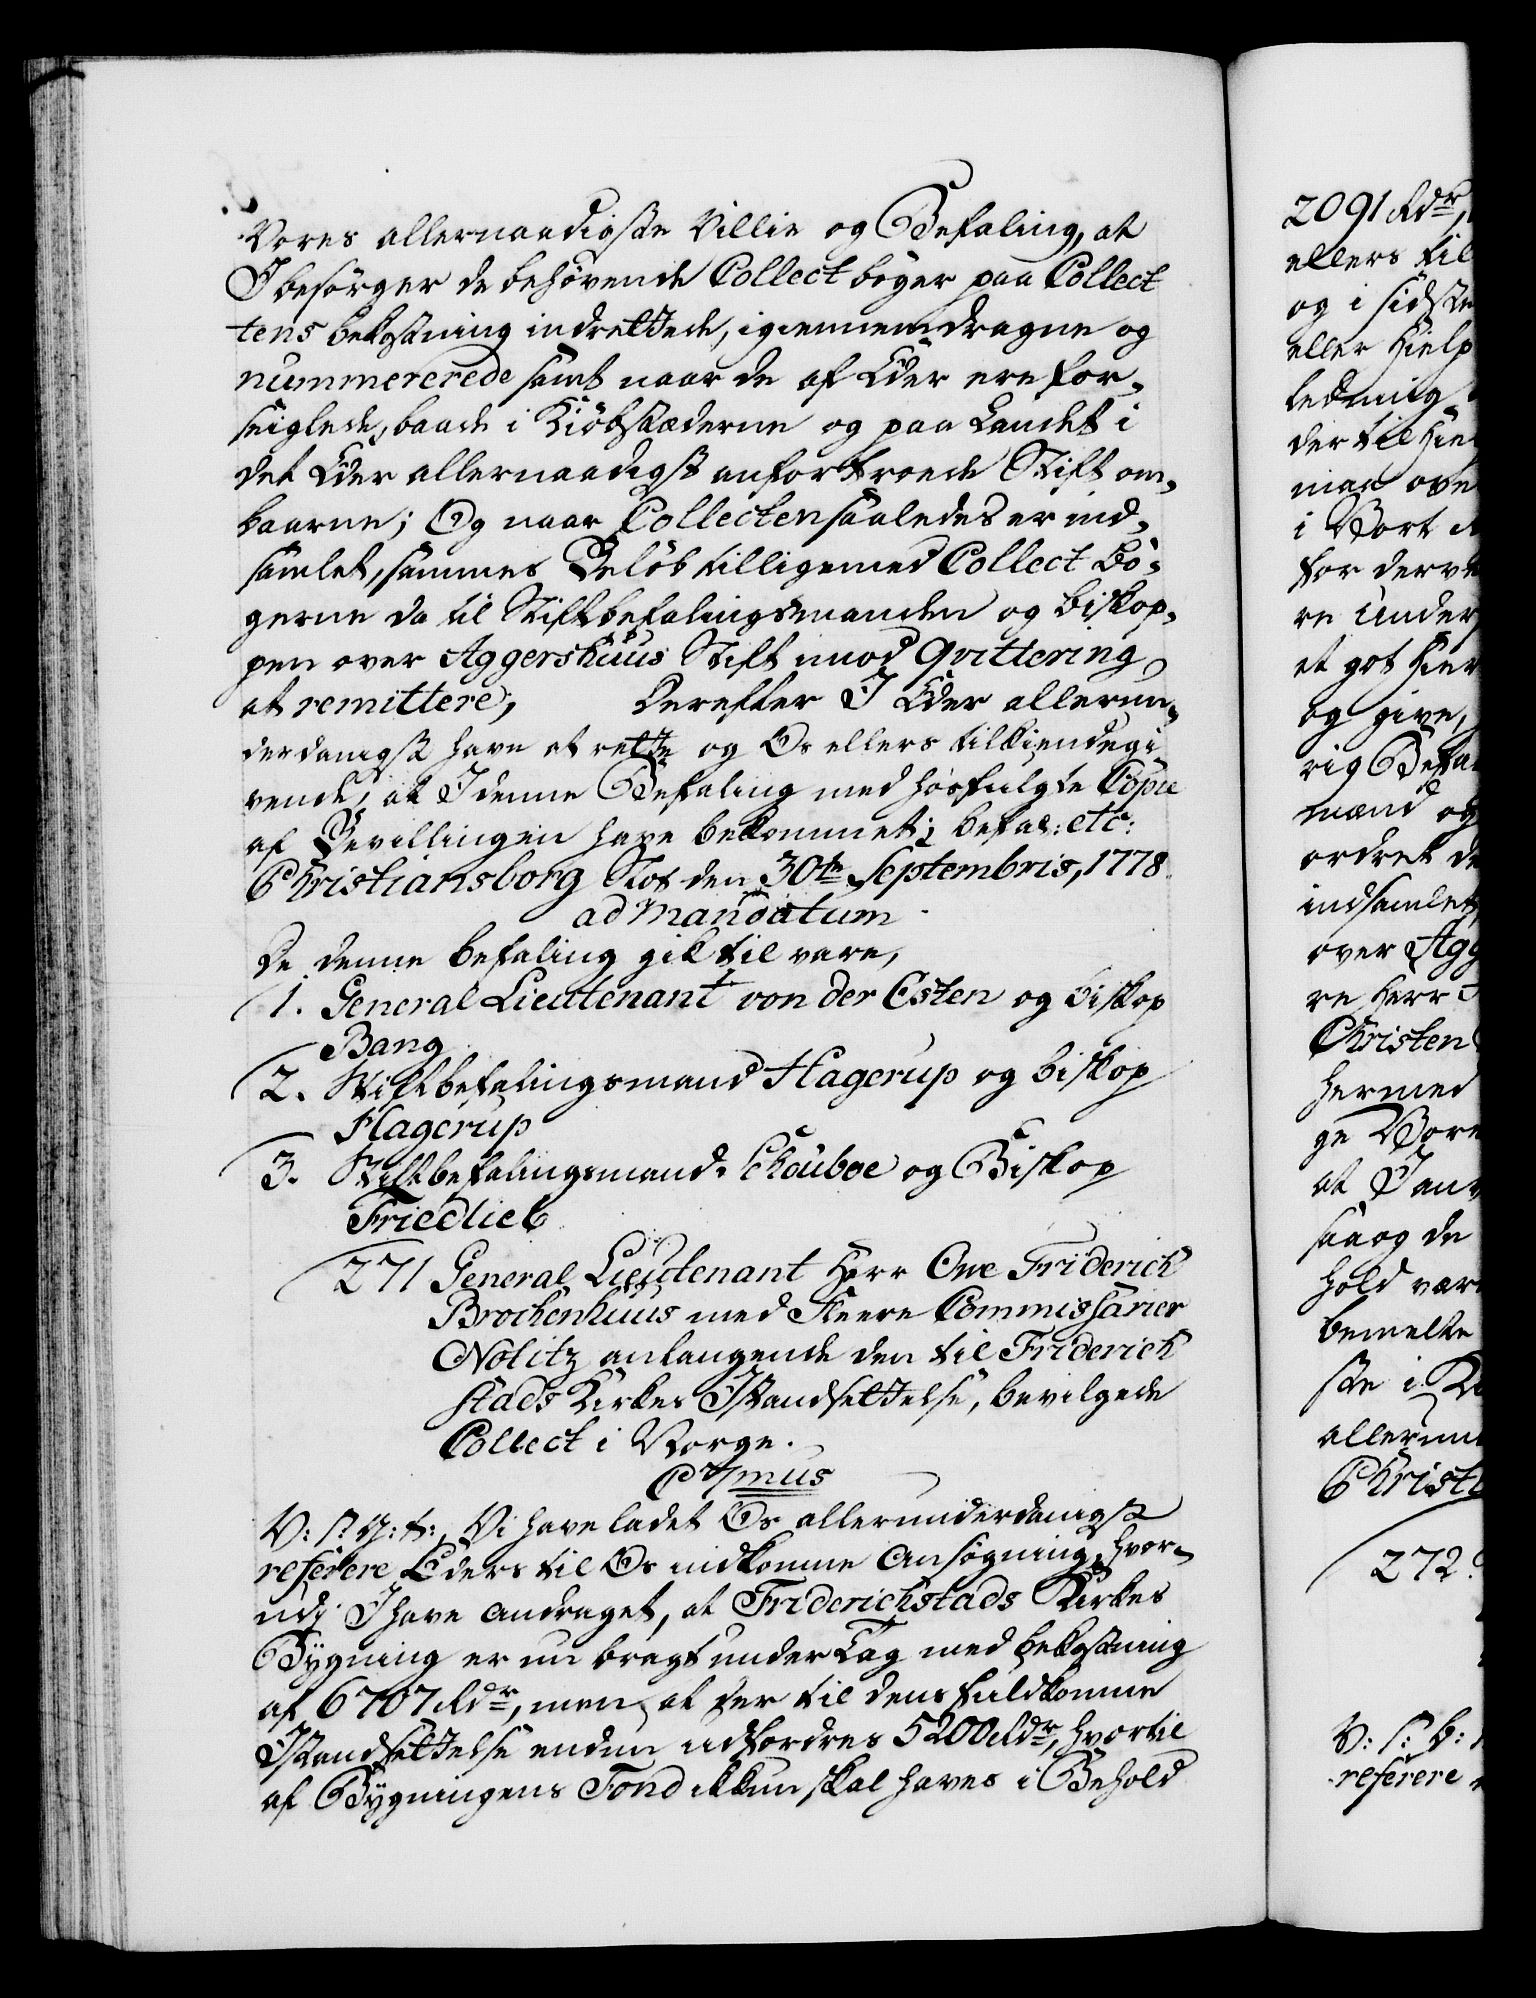 Vores allernaadigste Villie og Befaling, at
I besørger de behøvende Collect bøger paa Collect
tens bekostning indrettede, igiennemdragne og
nummererede samt naar de af Eder ere for-
seiglede, baade i Kiøbstæderne og paa Landet i
det Eder allernaadigst anfortroede Stift om-
baarne; Og naar Collecten saaledes er ind-
samlet, sammes Beløb tilligemed Collect Bø-
gerne da til Stiftbefalingsmanden og Biskop-
pen over Aggershuus Stift imod Qvittering
at remittere; Derefter I Eder allerun-
derdanigst have at rette og Os ellers tilkiendegi
vende, at I denne Befaling med hosfulgte Copie
af Bevillingen have bekommet; befal: etc:
Christiansborg Slot den 30te Septembris, 1778.
ad Mandatum
De denne befaling gik til vare,
1. General Lieutenant von der Osten og Biskop
Bang
2. Stiftbefalingsmand Hagerup og biskop
Hagerup
3. Stiftbefalingsmand Schouboe og Biskop
Friedlieb
271 General Lieutenant Herr Ove Friderich
Brochenhuus med fleere Commissarier
Notitz anlangende den til Friderich
stads Kirkes Istandsettelse, bevilgede
Collect i Norge.
C 7mus
V: s: G: t:, Vi have ladet Os allerunderdanigst
referere Eders til Os indkomne Ansøgning, hvor-
udj I have andraget, at Friderichstads Kirkes
Bygning er nu bragt under Tag med bekostning
af 6707 Rdr, men at der til dens fuldkomne
Istandsettelse endnu udfordres 5200 Rdr, hvortil
af Bygningens Fond ikkun skal haves i Behold
2091 Rdr,
ellers til
og i sidste
eller Hielp
ledning
der til Hie
man ove
i Vort
for derve
re under
et got Hier
og give,
rig Befal
mænd og
ordret de
indsamlet
over Agg
re Herr
Christen
hermed
ge Vore
at I an
saa og de
hold vær
bemelte
ste i Ki
allerun
Christi
272.
V: s: b:
referere